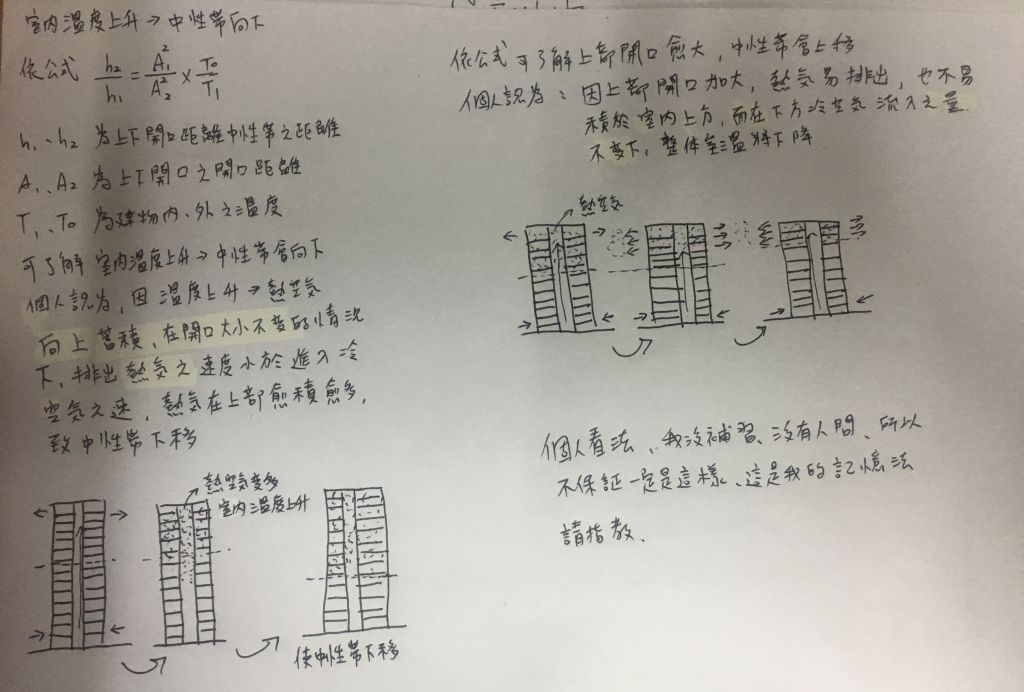 室內溫度上升→中性帶向下
依公式 h₂/h₁ = A₁²/A₂² × T₀/T₁
h₁、h₂ 為上下開口距離中性帶之距離
A₁、A₂ 為上下開口之開口距離
T₁、T₀ 為建物內、外之溫度
可了解 室內溫度上升→中性帶會向下
個人認為,因溫度上升→熱空氣
向上蓄積,在開口大小不變的情況
下,排出熱気之速度小於進入冷
空気之速,熱気在上部愈積愈多,
致中性帶下移
熱空気變多
室內溫度上升
使中性帶下移
依公式可了解上部開口愈大,中性帶會上移
個人認為:因上部開口加大,熱気易排出,也不易
積於室內上方,而在下方冷空気流入之量
不變下,整体室溫將下降
熱空気
個人看法、我沒補習、沒有人問、所以
不保証一定是這樣、這是我的記憶法
請指教、